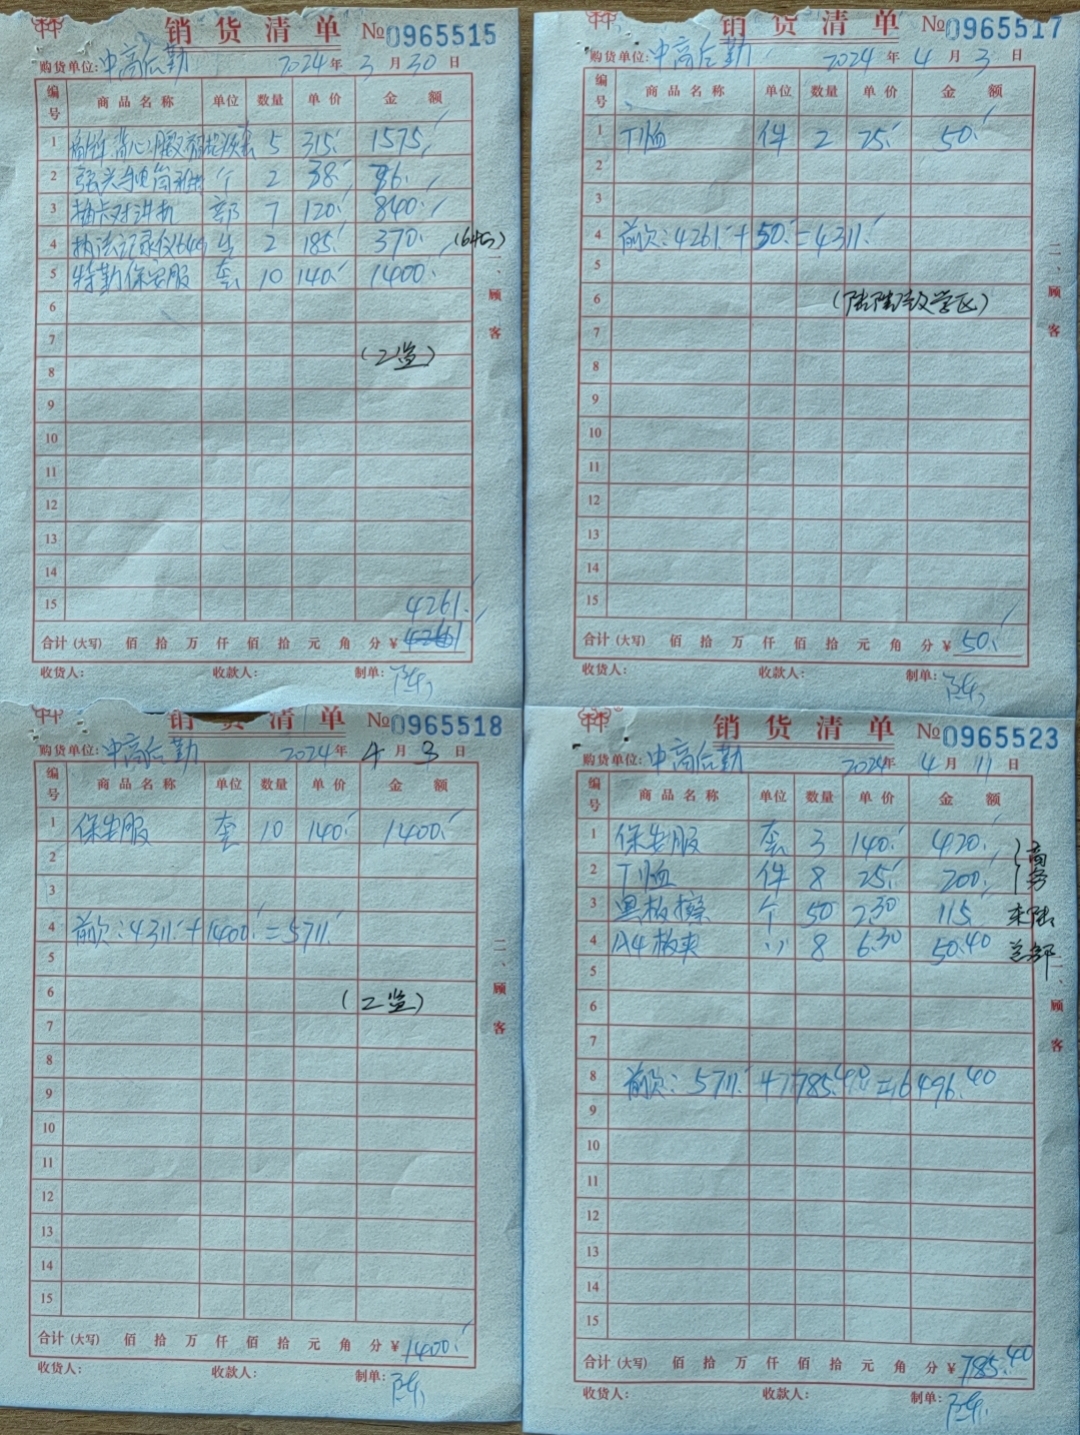 销货清单 №0965515
购货单位: 中高后勤 2024年3月30日
编号 商品名称 单位 数量 单价 金额
1 5 315 1575
2 个 2 38
3 插卡对讲机 部 7 120 840
4 执法记录仪64G 2 185 370 (64G)
5 特勤保安服 套 10 140 1400
6
7 (工贸)
8
9
10
11
12
13
14
15 4261
合计(大写) 佰 拾 万 仟 佰 拾 元 角 分 ¥
收货人: 收款人: 制单: 陈
二、顾客
销货清单 №0965517
购货单位: 中高后勤 2024年4月3日
编号 商品名称 单位 数量 单价 金额
1 T恤 件 2 25 50
2
3
4 前欠:4261+50=4311
5
6
7
8
9
10
11
12
13
14
15
合计(大写) 佰 拾 万 仟 佰 拾 元 角 分 ¥50
收货人: 收款人: 制单: 陈
二、顾客
销货清单 №0965518
购货单位: 中高后勤 2024年4月3日
编号 商品名称 单位 数量 单价 金额
1 保安服 套 10 140 1400
2
3
4 前欠:4311+1400=5711
5
6 (工贸)
7
8
9
10
11
12
13
14
15
合计(大写) 佰 拾 万 仟 佰 拾 元 角 分 ¥1400
收货人: 收款人: 制单: 陈
二、顾客
销货清单 №0965523
购货单位: 中高后勤 2024年4月11日
编号 商品名称 单位 数量 单价 金额
1 保安服 套 3 140 420 商务
2 T恤 件 8 25 200
3 黑板擦 个 50 2.30 115
4 A4板夹 〃 8 6.30 50.40 总部
5
6
7
8 前欠:5711+785.40=6496.40
9
10
11
12
13
14
15
合计(大写) 佰 拾 万 仟 佰 拾 元 角 分 ¥785.40
收货人: 收款人: 制单: 陈
二、顾客